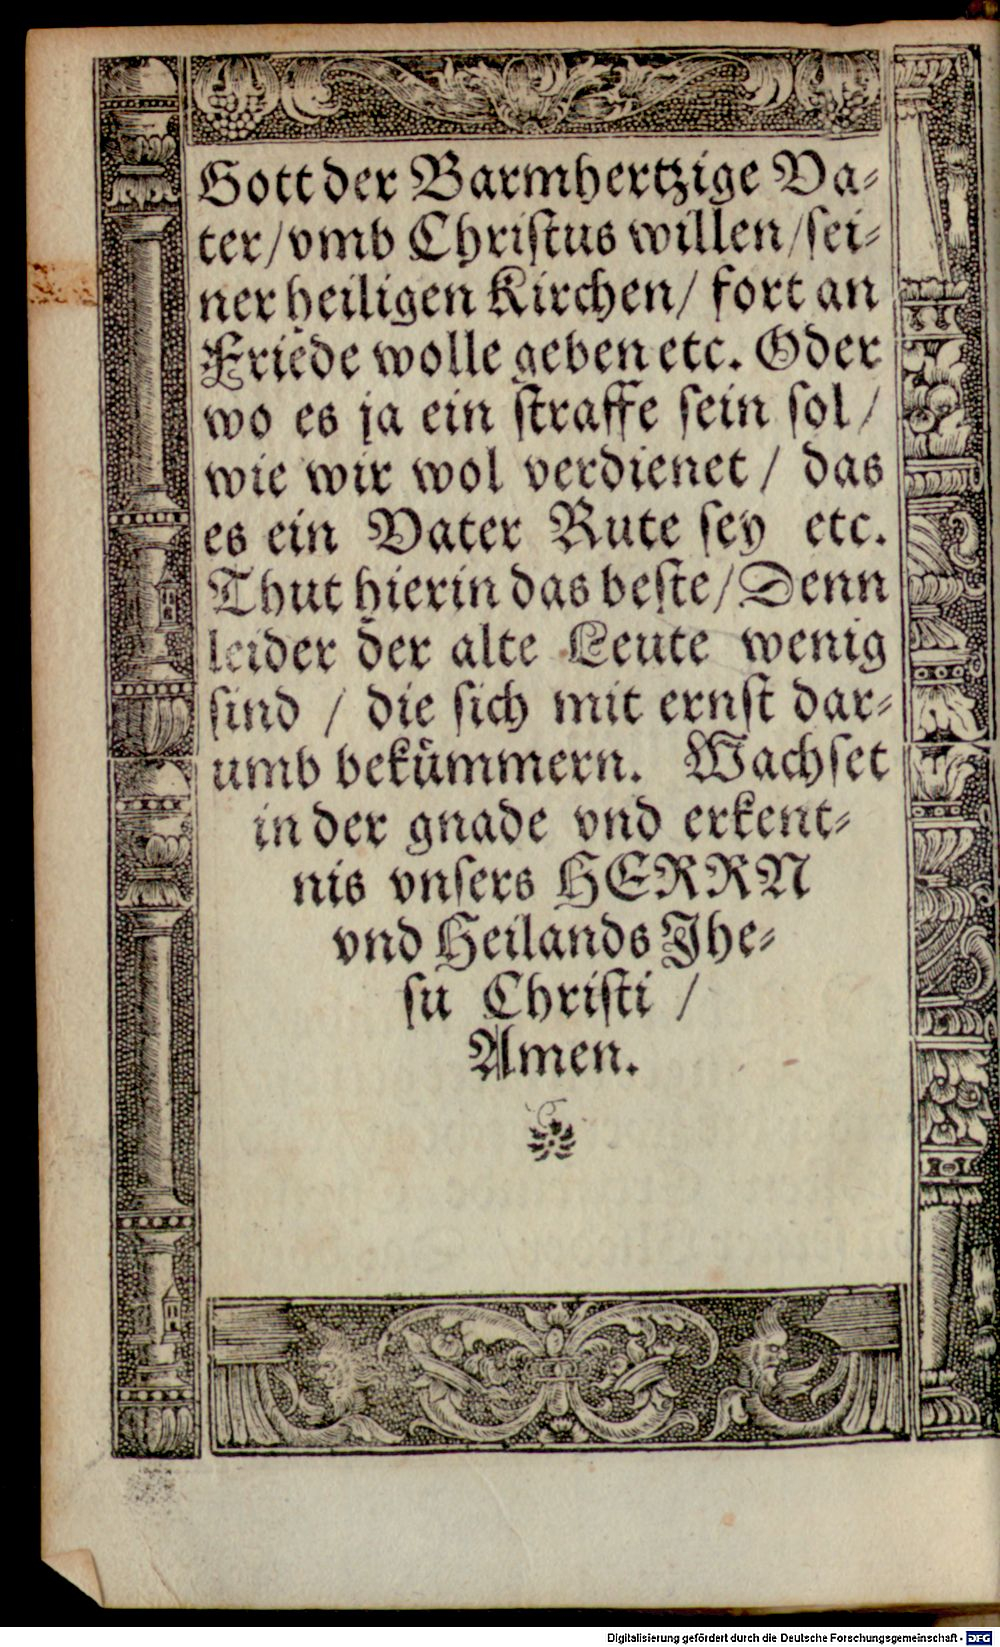 Gott der Barmhertzige Va⸗
ter/vmb Christus willen/sei⸗
ner heiligen Kirchen/ fort an
Friede wolle geben etc. Oder
wo es ja ein straffe sein sol/
wie wir wol verdienet/ das
es ein Vater Rute sey etc.
Thut hierin das beste/Denn
leider der alte Leute wenig
sind / die sich mit ernst dar⸗
umb bekümmern. Wachset
in der gnade vnd erkent⸗
nis vnsers HERRN
vnd Heilands Jhe⸗
su Christi /
Amen.
Digitalisierung gefördert durch die Deutsche Forschungsgemeinschaft - DFG